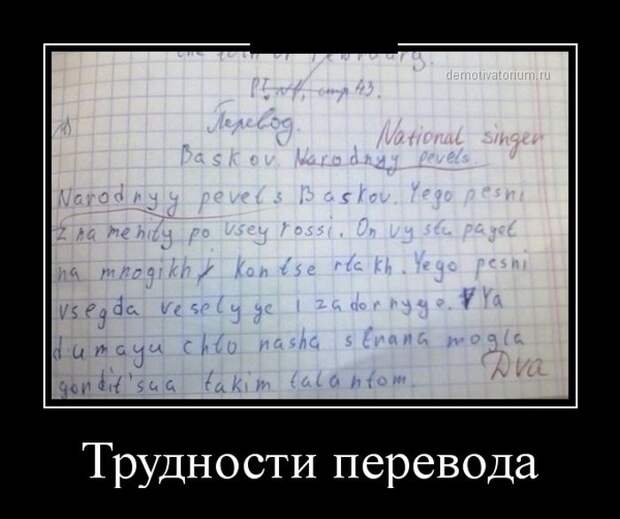 of February.
demotivatorium.ru
стр 43.
1)
Перевод.
National singer
Baskov. Narodnyy pevets.
Narodnyy pevets Baskov. Yego pesni
znamenity po vsey rossi. On vystupayet
na mnogikh kontsertakh. Yego pesni
vsegda veselyye i zadornyye. Ya
dumayu chto nasha strana mogla
gordit'sua takim talantom.
Dva
Трудности перевода